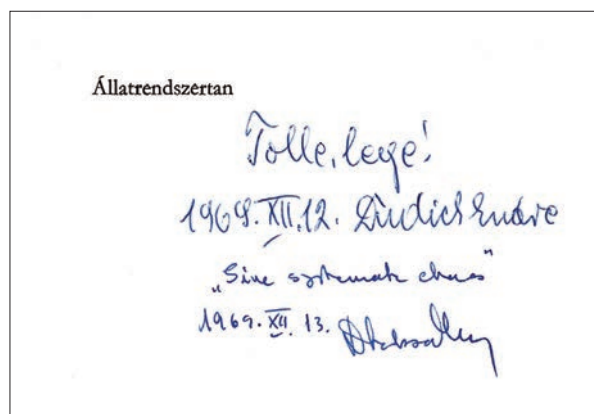 Állatrendszertan
Tolle, lege!
1969. XII. 12. Dudich Endre
„Sine systemate chaos”
1969. XII. 13.